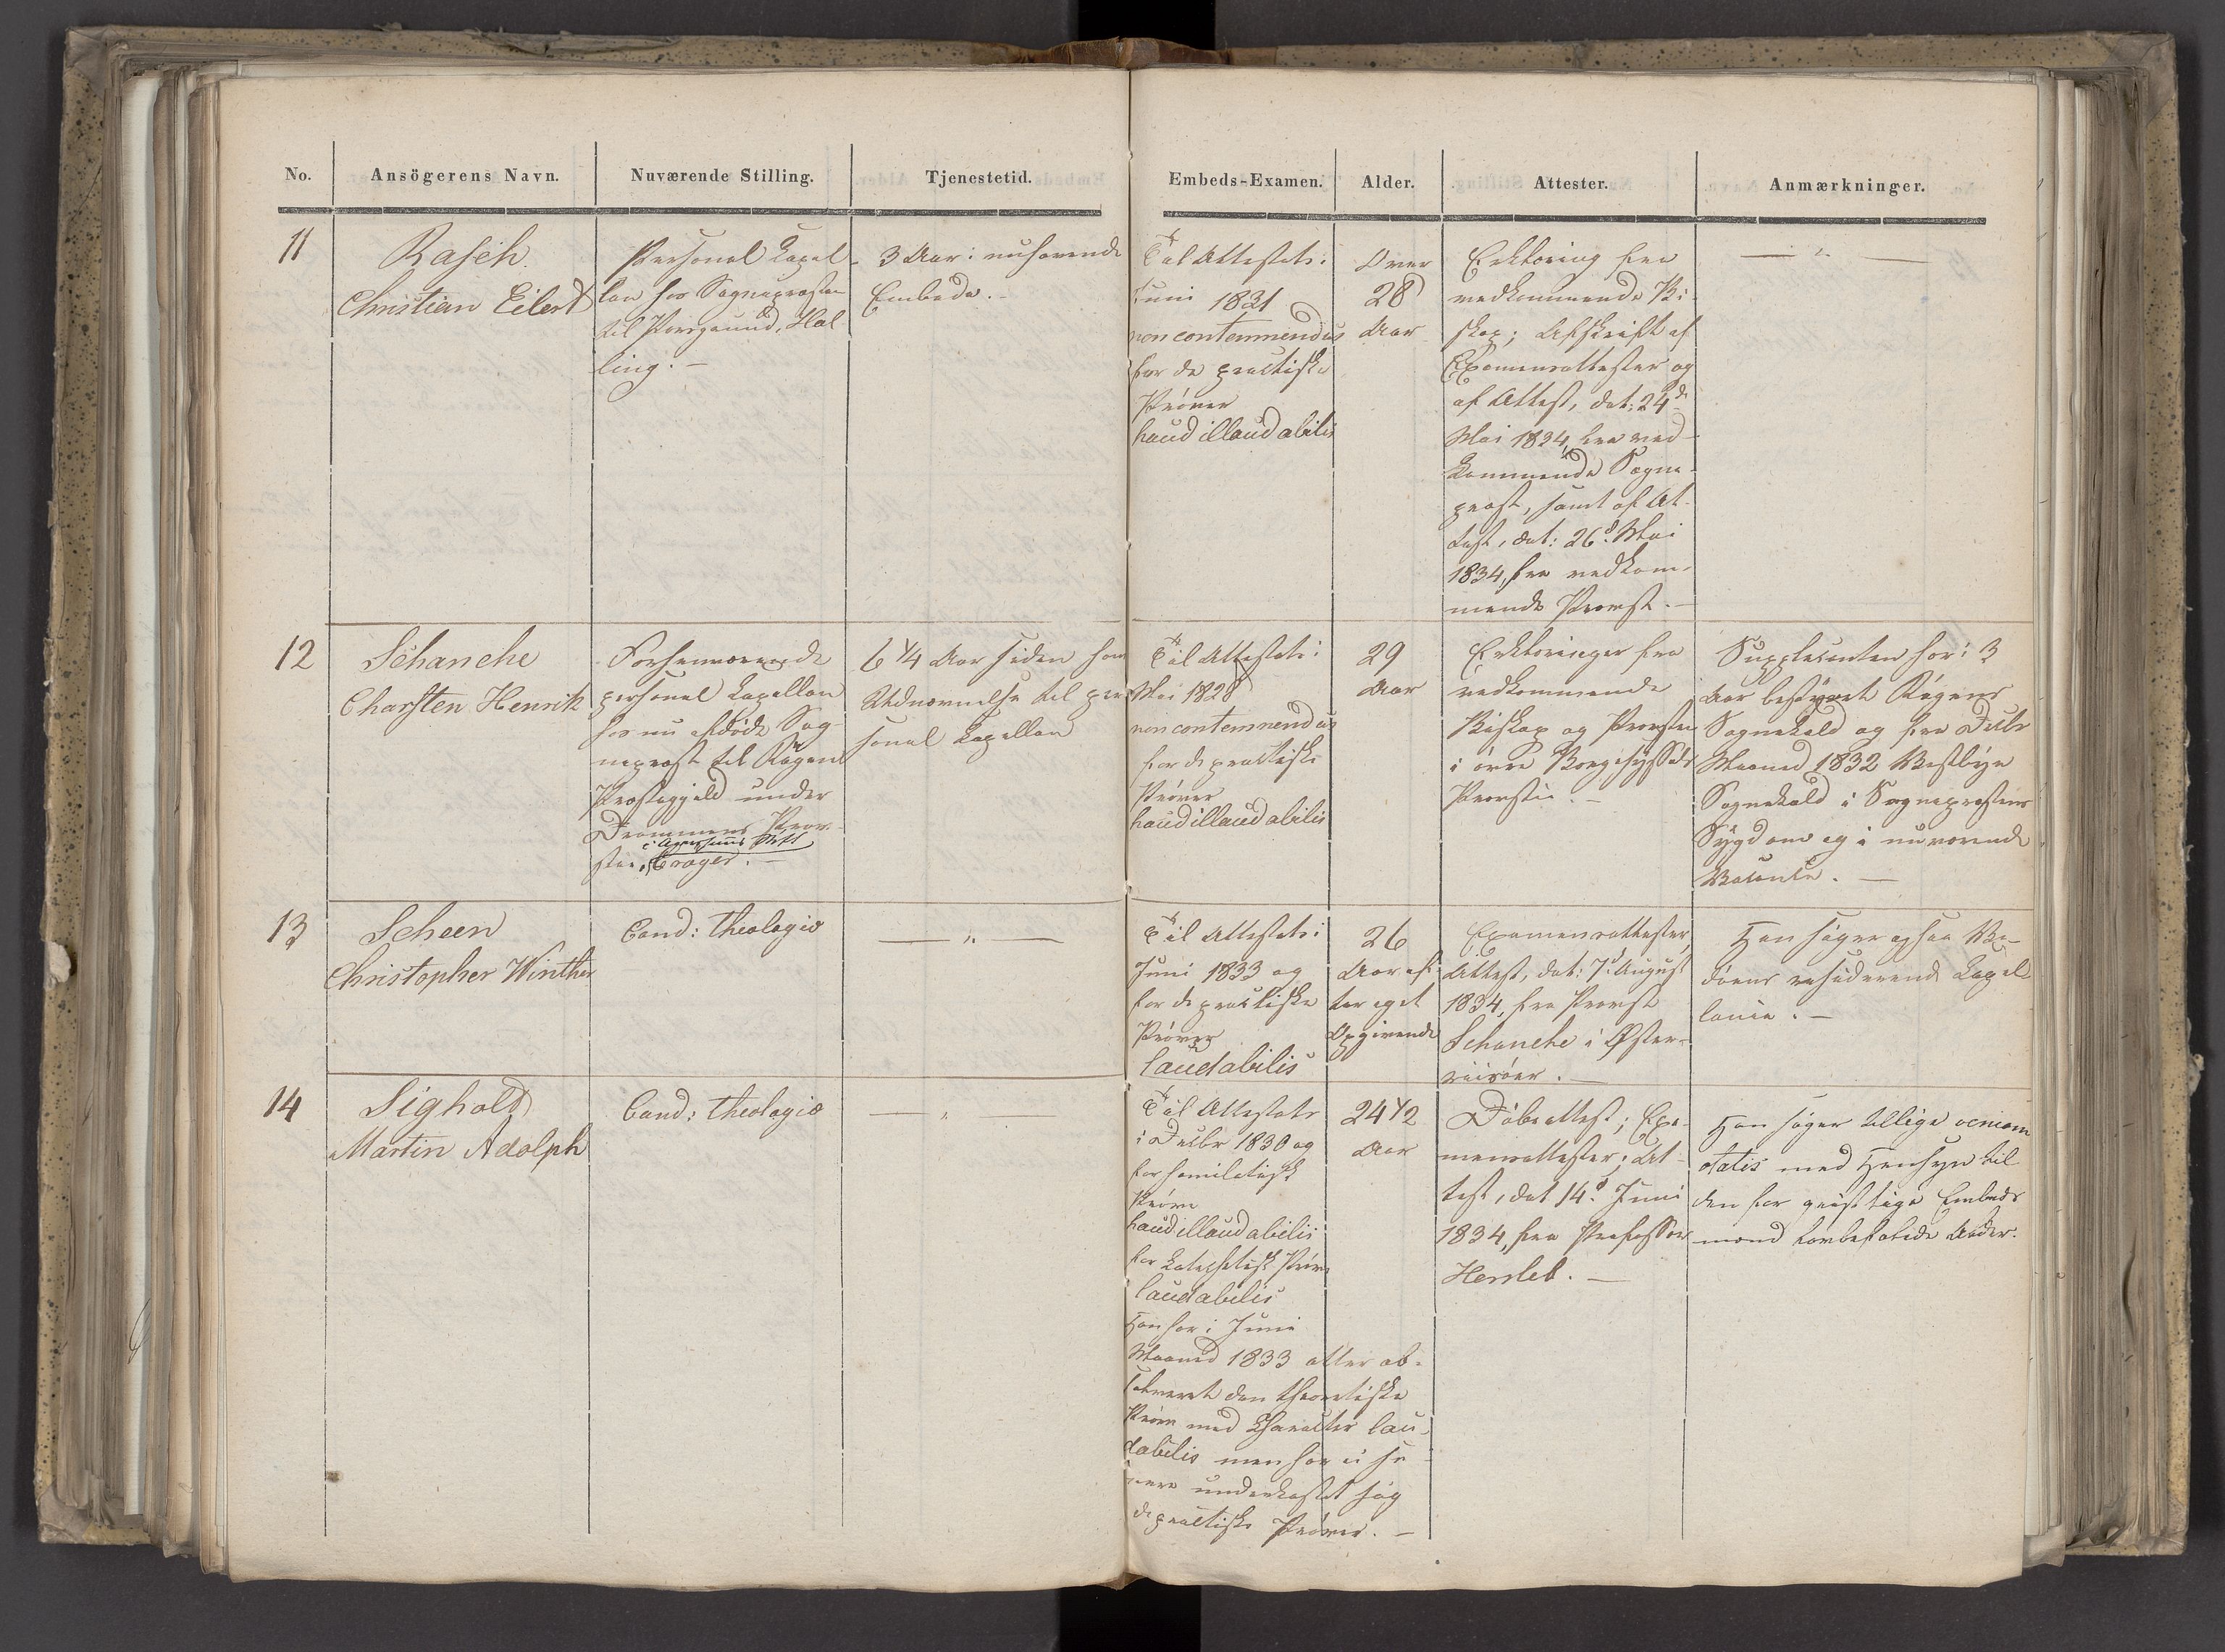 No.
Ansögerens Navn.
Nuværende Stilling.
Tjenestetid.
Embeds-Examen.
Alder.
Attester.
Anmærkninger.
11
Rasch
Christian Eilert
Personel Capel-
lan hos Sognepræsten
til Porsgrund, Hal
ling. -
3 Aar i nuhavende
Embede. -
Til Attestats:
Juni 1831
non contemnendus
for de practiske
Prøver
haud illaudabilis
Over
28
Aar
Erklæring fra
vedkommende Bi-
skop; Afskrift af
Examensattester og
af Attest, dat: 24de
Mai 1834, fra ved-
kommende Sogne-
præst, samt af At-
test, dat: 26d Mai
1834, fra vedkom-
mende Provst. -
— " —
12
Schanche
Charsten Henrik
Forhenværende
personel Capellan
hos nu afdøde Sog-
nepræst til Rögen
Præstegjeld under
Drammens Prov-
stie,
i Aggershuus Stift
Crøger. -
6 1/4 Aar siden hans
Udnævnelse til per
sonel Capellan
Til Attestats:
Mai 1828
non contemnendus
for de practiske
Prøver
haud illaudabilis
29
Aar
Erklæringer fra
vedkommende
Biskop og Provsten
i øvre Borgesyssels
Provstie. -
Supplicanten har i 3
Aar bestyret Rögens
Sognekald og fra Decbr
Maaned 1832 Vestbye
Sognekald i Sognepræstens
Sygdom og i nuværende
Vacance. —
13
Scheen
Christopher Winther
Cand: theologiæ
— " —
Til Attestats:
Juni 1833 og
for de practiske
Prøver
laudabilis
26
Aar ef-
ter eget
Opgivende
Examensattester,
Attest, dat: 7d August
1834, fra Provst
Schanche i Øster-
riisøer. -
Han søger ogsaa Va-
döens residerende Capel
lanie. -
14
Sigholt
Martin Adolph
Cand: theologiæ
— " —
Til Attestats
i Decbr 1830 og
for homiletisk
Prøve
haud illaudabilis
for Catechetisk Prøve
laudabilis
Han har i Juni
Maaned 1833 atter ab-
solveret den theoretiske
Prøve med Charakter lau-
dabilis men har ei se-
nere underkastet sig
de practiske Prøver. -
24 1/2
Aar
Döbeattest; Exa-
mensattester; At-
test, dat 14d Juni
1834, fra Professor
Hersleb. -
Han söger tillige veniam
ætatis med Hensyn til
den for geistlige Embeds
mænd lovbefalede Alder.